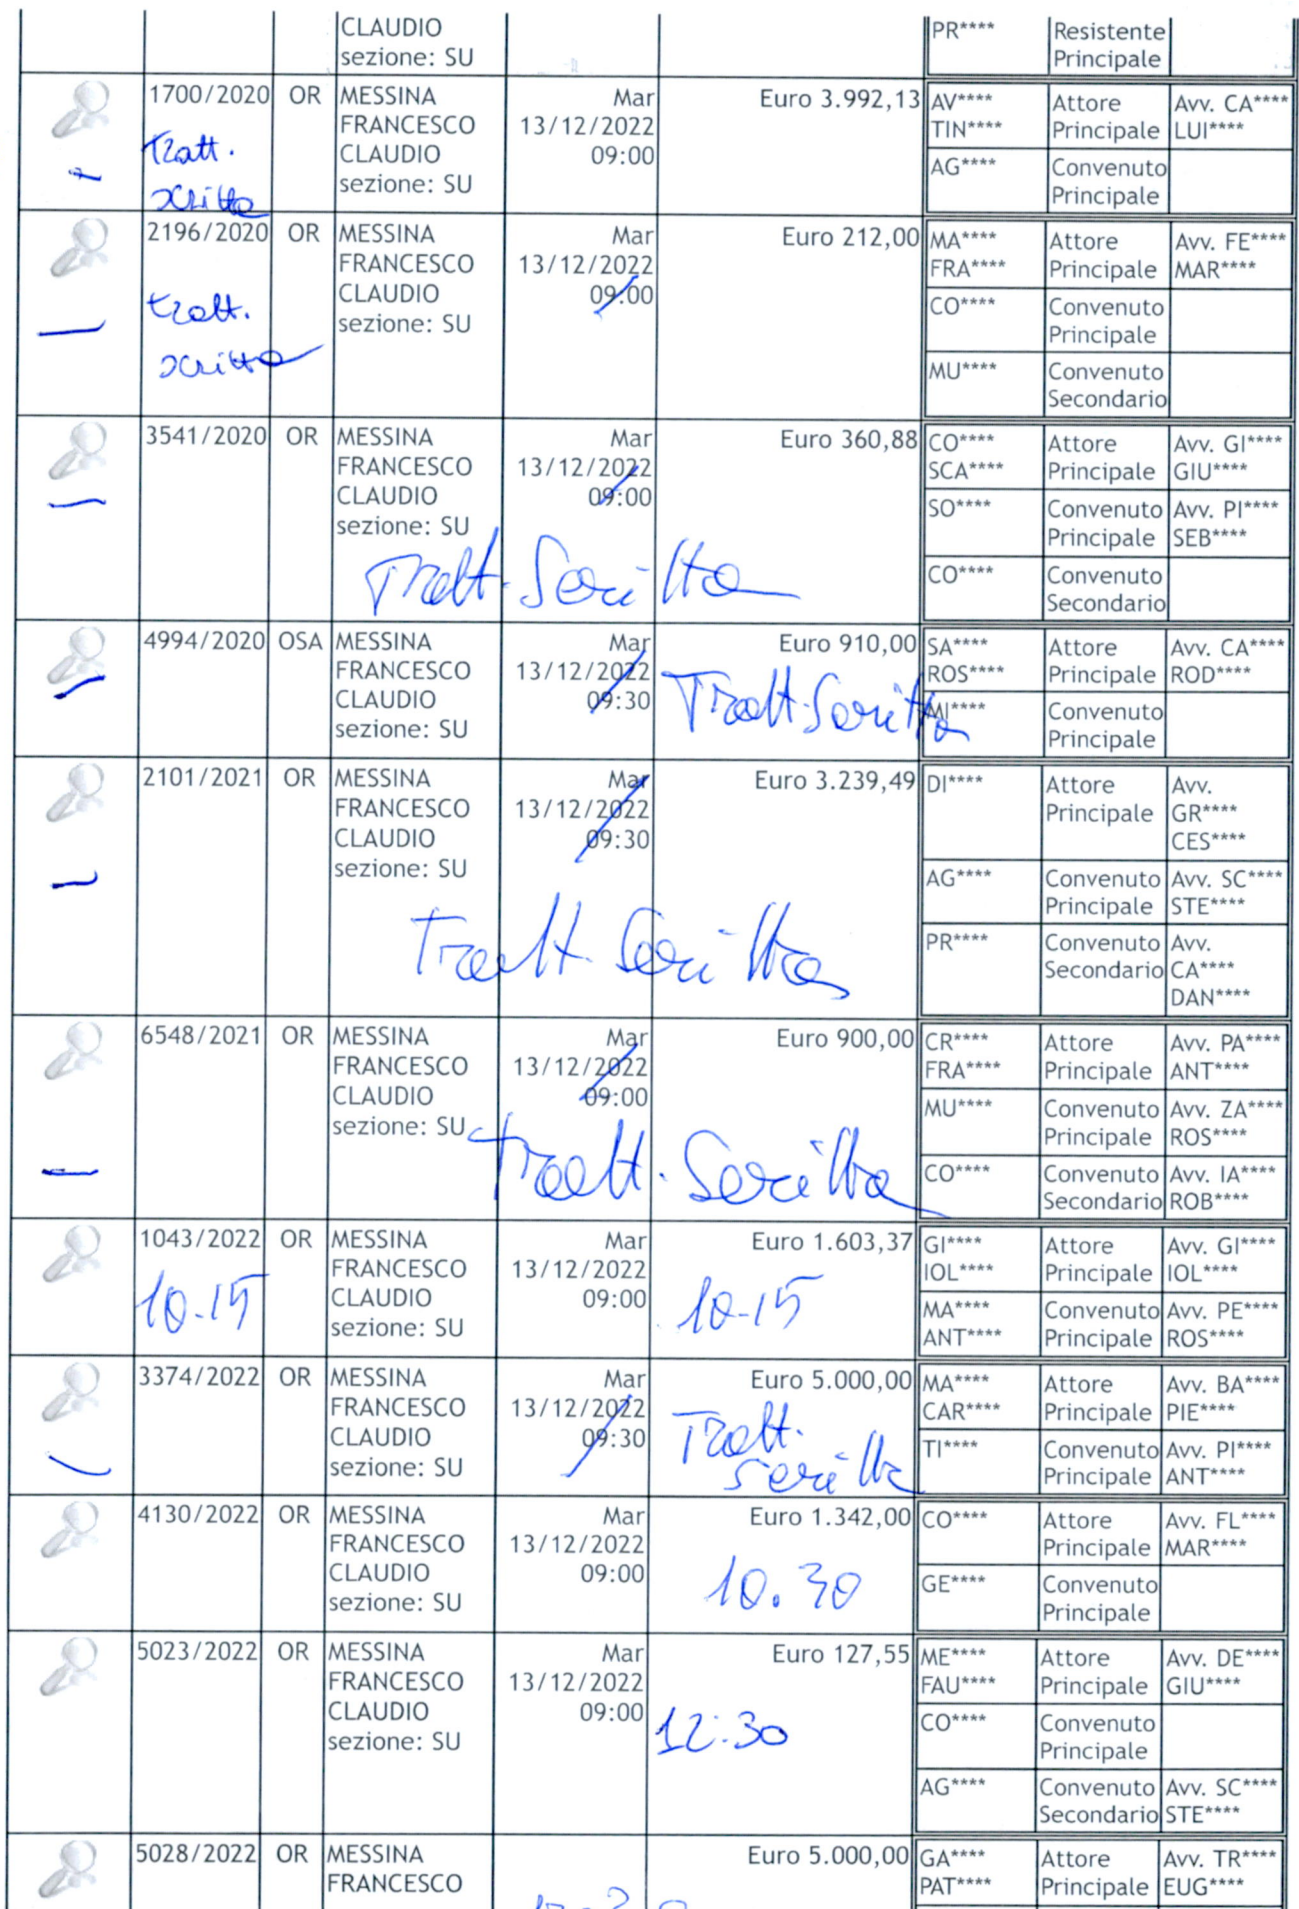 CLAUDIO
sezione: SU
PR**** Resistente
Principale
1700/2020 OR MESSINA
FRANCESCO
CLAUDIO
sezione: SU
Mar
13/12/2022
09:00
Euro 3.992,13
AV**** TIN**** Attore Principale Avv. CA**** LUI****
AG**** Convenuto Principale
Tratt.
scritta
2196/2020 OR MESSINA
FRANCESCO
CLAUDIO
sezione: SU
Mar
13/12/2022
09:00
Euro 212,00
MA**** FRA**** Attore Principale Avv. FE**** MAR****
CO**** Convenuto Principale
MU**** Convenuto Secondario
tratt.
scritta
3541/2020 OR MESSINA
FRANCESCO
CLAUDIO
sezione: SU
Mar
13/12/2022
09:00
Euro 360,88
CO**** SCA**** Attore Principale Avv. GI**** GIU****
SO**** Convenuto Principale Avv. PI**** SEB****
CO**** Convenuto Secondario
Tratt. Scritta
4994/2020 OSA MESSINA
FRANCESCO
CLAUDIO
sezione: SU
Mar
13/12/2022
09:30
Euro 910,00
SA**** ROS**** Attore Principale Avv. CA**** ROD****
MI**** Convenuto Principale
Tratt. Scritta
2101/2021 OR MESSINA
FRANCESCO
CLAUDIO
sezione: SU
Mar
13/12/2022
09:30
Euro 3.239,49
DI**** Attore Principale Avv. GR**** CES****
AG**** Convenuto Principale Avv. SC**** STE****
PR**** Convenuto Secondario Avv. CA**** DAN****
Tratt. Scritta
6548/2021 OR MESSINA
FRANCESCO
CLAUDIO
sezione: SU
Mar
13/12/2022
09:00
Euro 900,00
CR**** FRA**** Attore Principale Avv. PA**** ANT****
MU**** Convenuto Principale Avv. ZA**** ROS****
CO**** Convenuto Secondario Avv. IA**** ROB****
Tratt. Scritta
1043/2022 OR MESSINA
FRANCESCO
CLAUDIO
sezione: SU
Mar
13/12/2022
09:00
Euro 1.603,37
GI**** IOL**** Attore Principale Avv. GI**** IOL****
MA**** ANT**** Convenuto Principale Avv. PE**** ROS****
10-15
10-15
3374/2022 OR MESSINA
FRANCESCO
CLAUDIO
sezione: SU
Mar
13/12/2022
09:30
Euro 5.000,00
MA**** CAR**** Attore Principale Avv. BA**** PIE****
TI**** Convenuto Principale Avv. PI**** ANT****
Tratt.
Scritta
4130/2022 OR MESSINA
FRANCESCO
CLAUDIO
sezione: SU
Mar
13/12/2022
09:00
Euro 1.342,00
CO**** Attore Principale Avv. FL**** MAR****
GE**** Convenuto Principale
10.30
5023/2022 OR MESSINA
FRANCESCO
CLAUDIO
sezione: SU
Mar
13/12/2022
09:00
Euro 127,55
ME**** FAU**** Attore Principale Avv. DE**** GIU****
CO**** Convenuto Principale
AG**** Convenuto Secondario Avv. SC**** STE****
12:30
5028/2022 OR MESSINA
FRANCESCO
Euro 5.000,00
GA**** PAT**** Attore Principale Avv. TR**** EUG****